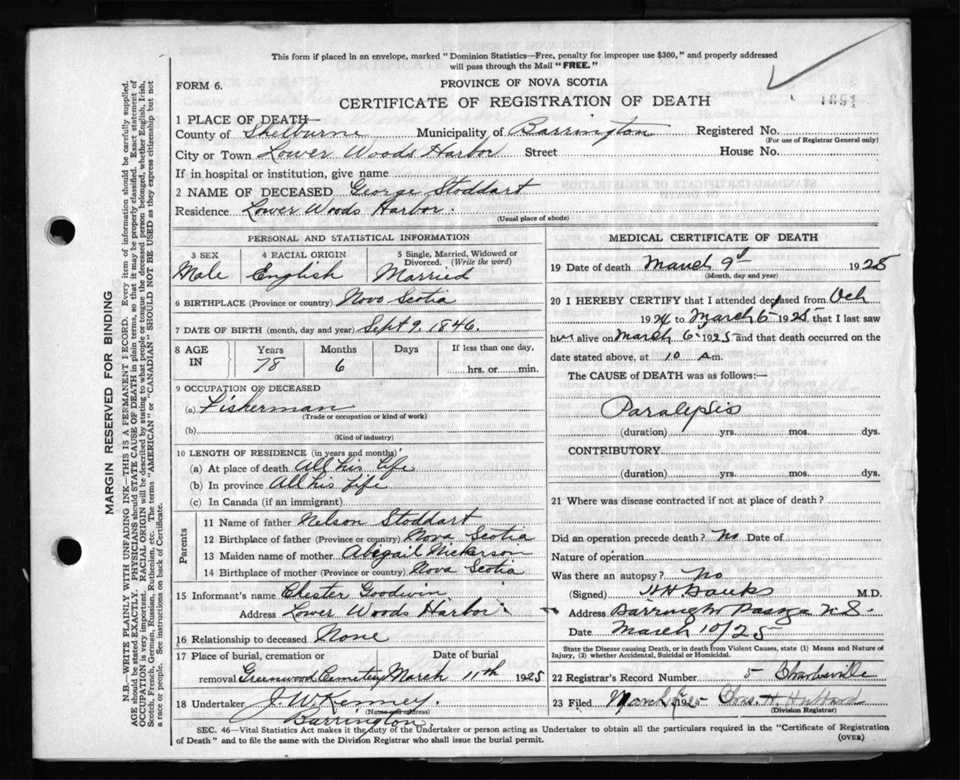 This form if placed in an envelope, marked "Dominion Statistics—Free, penalty for improper use $300," and properly addressed
will pass through the Mail "FREE."
FORM 6.
PROVINCE OF NOVA SCOTIA
CERTIFICATE OF REGISTRATION OF DEATH
1 PLACE OF DEATH—
County of Shelburne Municipality of Barrington Registered No.
(For use of Registrar General only)
City or Town Lower Woods Harbor Street House No.
If in hospital or institution, give name
2 NAME OF DECEASED George Stoddart
Residence Lower Woods Harbor.
(Usual place of abode)
PERSONAL AND STATISTICAL INFORMATION
3 SEX 4 RACIAL ORIGIN 5 Single, Married, Widowed or Divorced. (Write the word)
Male English Married
6 BIRTHPLACE (Province or country) Nova Scotia
7 DATE OF BIRTH (month, day and year) Sept 9. 1846.
8 AGE IN Years Months Days If less than one day,
78 6 hrs. or min.
9 OCCUPATION OF DECEASED
(a) Fisherman
(Trade or occupation or kind of work)
(b)
(Kind of industry)
10 LENGTH OF RESIDENCE (in years and months)
(a) At place of death All his Life
(b) In province All his Life
(c) In Canada (if an immigrant)
Parents
11 Name of father Nelson Stoddart
12 Birthplace of father (Province or country) Nova Scotia
13 Maiden name of mother Abegail Nickerson
14 Birthplace of mother (Province or country) Nova Scotia
15 Informant's name Chester Goodwin
Address Lower Woods Harbor
16 Relationship to deceased None
17 Place of burial, cremation or Date of burial
removal Greenwood Cemetery March 11th 1925
18 Undertaker J. W. Kenney
(Name and address)
Barrington.
MEDICAL CERTIFICATE OF DEATH
19 Date of death March 9th 1925
(Month, day and year)
20 I HEREBY CERTIFY that I attended deceased from Och
1924 to March 6 1925 that I last saw
him alive on March 6 1925 and that death occurred on the
date stated above, at 10 a m.
The CAUSE of DEATH was as follows:—
Paralepsis
(duration) yrs. mos. dys.
CONTRIBUTORY
(duration) yrs. mos. dys.
21 Where was disease contracted if not at place of death?
Did an operation precede death? No Date of
Nature of operation
Was there an autopsy? No
(Signed) H H Banks M.D.
Address Barrington Passage N.S.
Date March 10/25
State the Disease causing Death, or in death from Violent Causes, state (1) Means and Nature of
Injury, (2) whether Accidental, Suicidal or Homicidal.
22 Registrar's Record Number 5 Charlesville
23 Filed 1925 Chas. H. Hubbard
(Division Registrar)
SEC. 46—Vital Statistics Act makes it the duty of the Undertaker or person acting as Undertaker to obtain all the particulars required in the "Certificate of Registration
of Death" and to file the same with the Division Registrar who shall issue the burial permit.
(OVER)
MARGIN RESERVED FOR BINDING
N.B.—WRITE PLAINLY WITH UNFADING INK—THIS IS A PERMANENT RECORD. Every item of information should be carefully supplied.
AGE should be stated EXACTLY. PHYSICIANS should STATE CAUSE OF DEATH in plain terms, so that it may be properly classified. Exact statement of
OCCUPATION is very important. RACIAL ORIGIN will be described by stating to what people or tongue the deceased person belonged, whether English, Irish,
Scotch, French, German, Russian, Ruthenian, etc. The terms "AMERICAN" or "CANADIAN" SHOULD NOT BE USED as they express citizenship but not
a race or people. See instructions on back of Certificate.